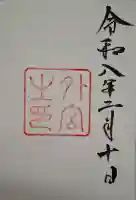 令和八年二月十日
外宮之印